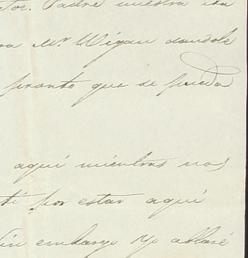 Padre nuestra
Mr. Wigan dandole
pronto que se pueda
aquí mientras nos
por estar aquí
Sin embargo yo ablaré